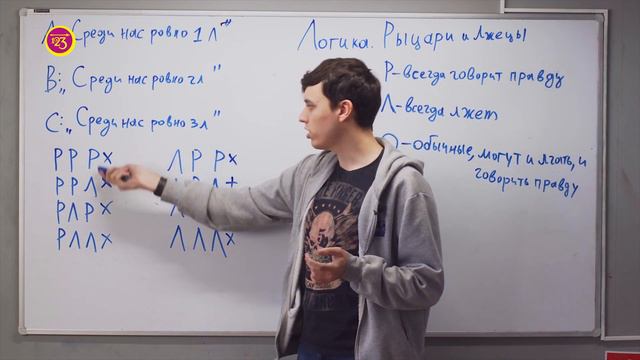 А: „Среди нас ровно 1 л"
Логика. Рыцари и лжецы
123
В: „Среди нас ровно 2л"
Р-всегда говорит правду
С: „Среди нас ровно 3л"
Л-всегда лжет
О-обычные, могут и лгать, и говорить правду
Р Р Р х
Л Р Р х
Р Р Л х
Л +
Р Л Р х
Р Л Л х
Л Л Л х